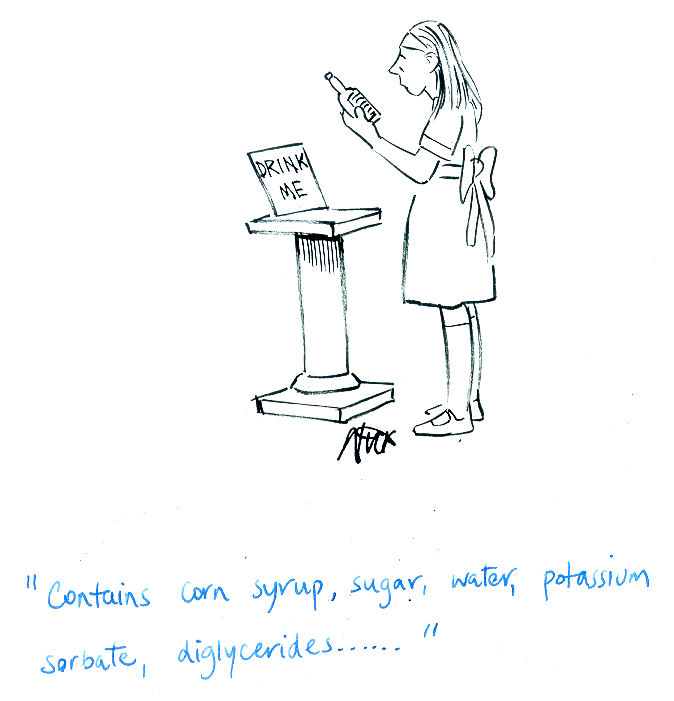 DRINK
ME
"Contains corn syrup, sugar, water, potassium
sorbate, diglycerides......"